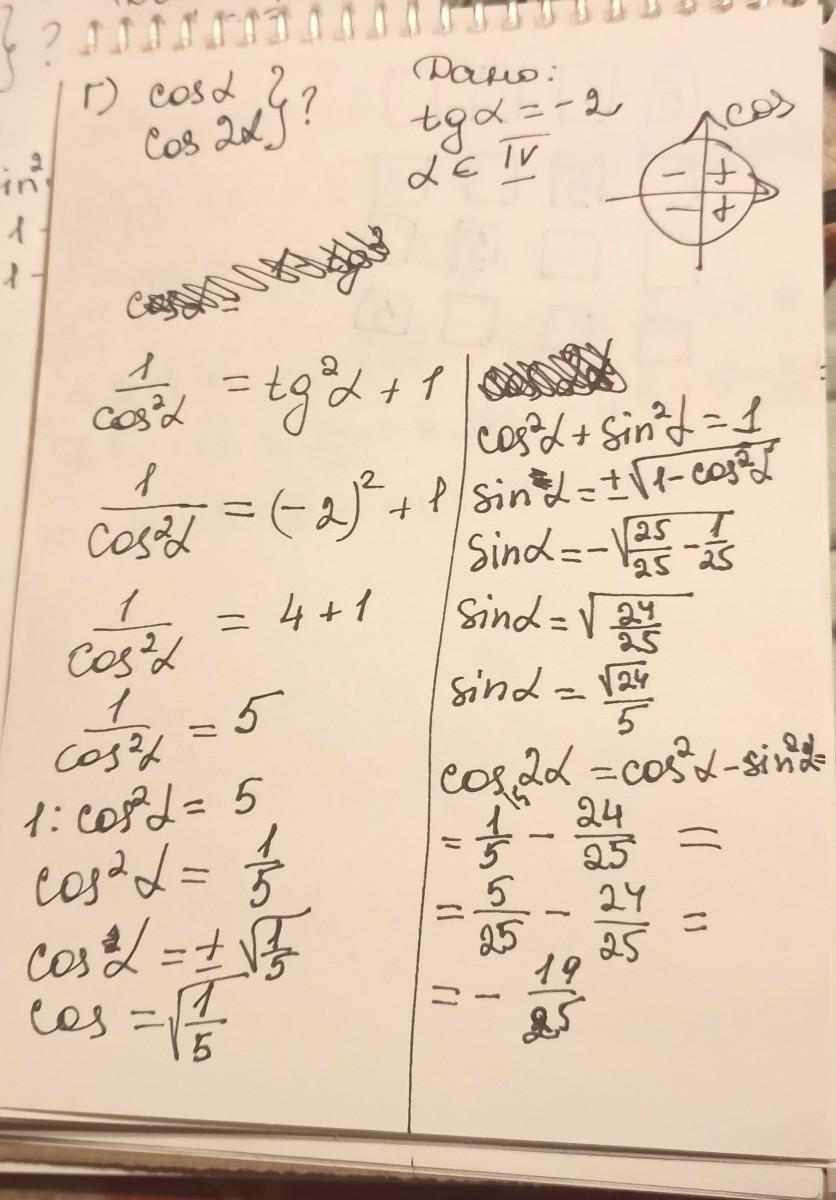 } ?
in²
1-
1-
г) cosα } ?
cos 2α
Дано:
tgα = -2
α ∈ IV
cos
- +
- +
1/cos²α = tg²α + 1
1/cos²α = (-2)² + 1
1/cos²α = 4 + 1
1/cos²α = 5
1 : cos²α = 5
cos²α = 1/5
cos α = ± √(1/5)
cos = √(1/5)
cos²α + sin²α = 1
sin α = ±√(1 - cos²α)
sinα = -√(25/25 - 1/25)
sinα = √(24/25)
sinα = √24/5
cos 2α = cos²α - sin²α =
= 1/5 - 24/25 =
= 5/25 - 24/25 =
= - 19/25